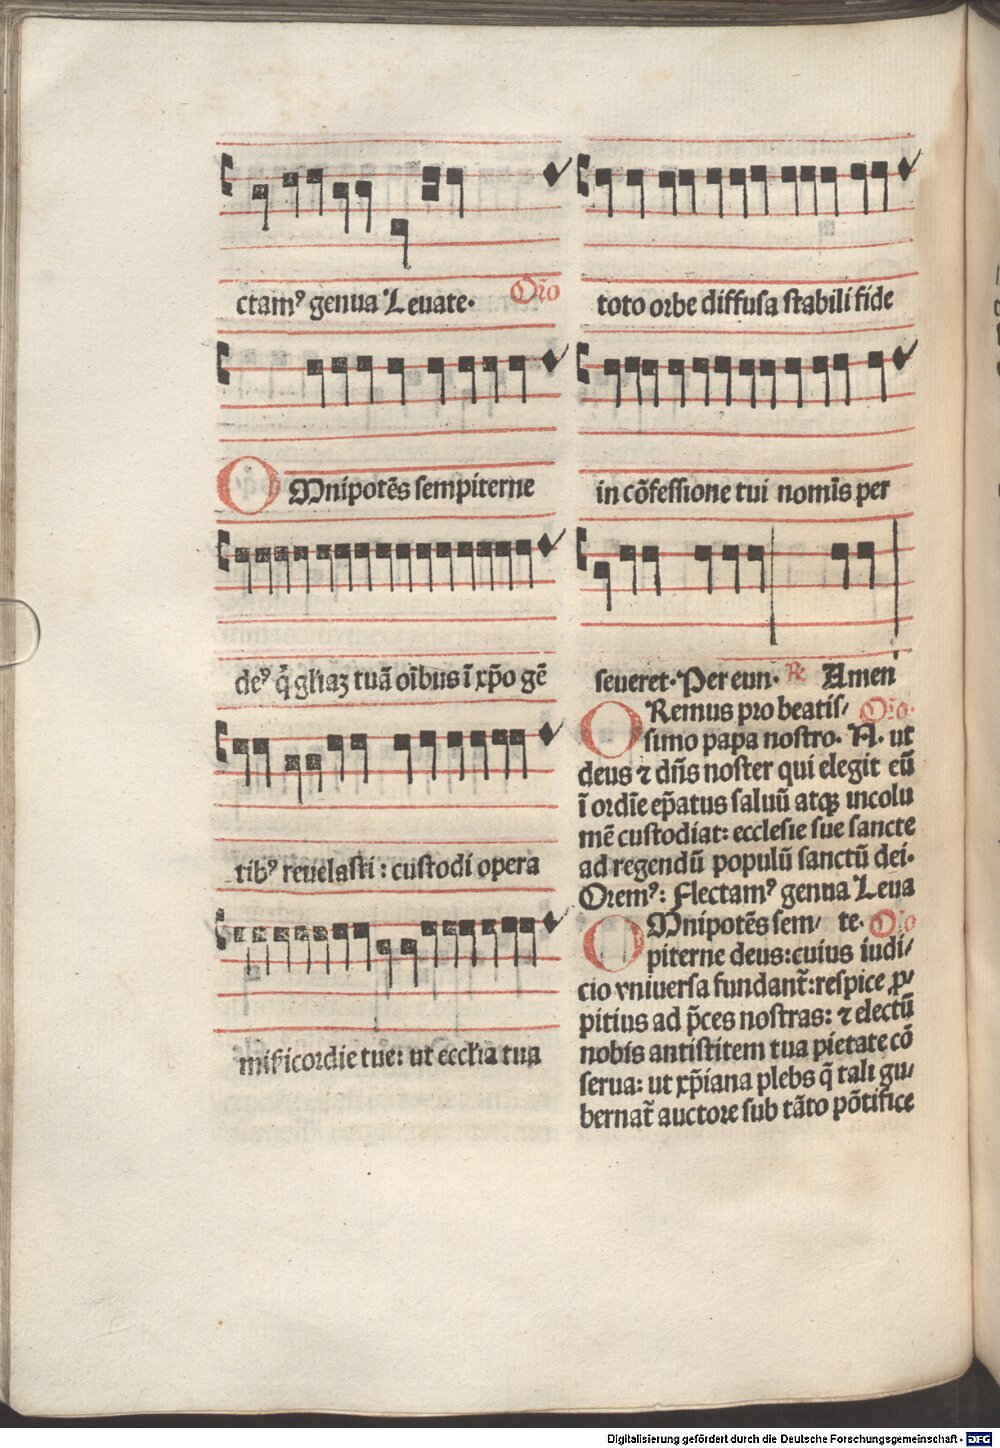 ctamꝰ genua Leuate. Orō
OMnipotēs sempiterne
deꝰ q̇ gl'iaꝫ tuā oībus ī xp̄o gē
tibꝰ reuelasti : custodi opera
misericordie tue: ut eccl'ia tua
toto orbe diffusa stabili fide
in cōfessione tui nomīs per
seueret. Per eun. ℞ Amen
ORemus pro beatis⸗ Orō.
simo papa nostro. N. ut
deus ⁊ dn̄s noster qui elegit eū
ī ordīe ep̄atus saluū atqꝫ incolu
mē custodiat: ecclesie sue sancte
ad regendū populū sanctū dei.
Oremꝰ: Flectamꝰ genua Leua
OMnipotēs sem⸗ te. Orō
piterne deus: cuius iudi⸗
cio vniuersa fundant᷑: respice ꝓ⸗
pitius ad p̄ces nostras: ⁊ electū
nobis antistitem tua pietate cō
serua: ut xp̄iana plebs q̄ tali gu⸗
bernat᷑ auctore sub tāto pōtifice
Digitalisierung gefördert durch die Deutsche Forschungsgemeinschaft - DFG